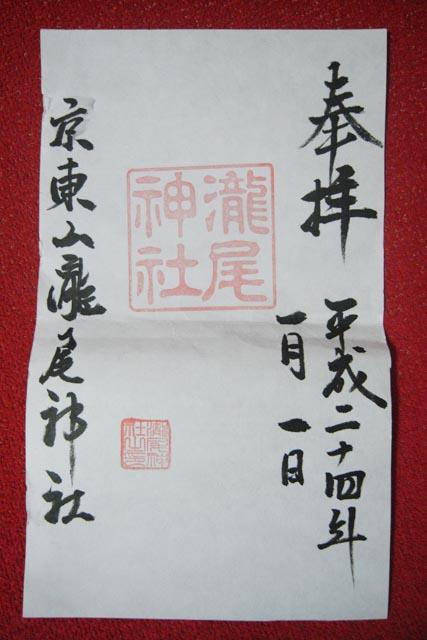 奉拝
平成二十四年
一月一日
瀧尾
神社
京東山瀧尾神社